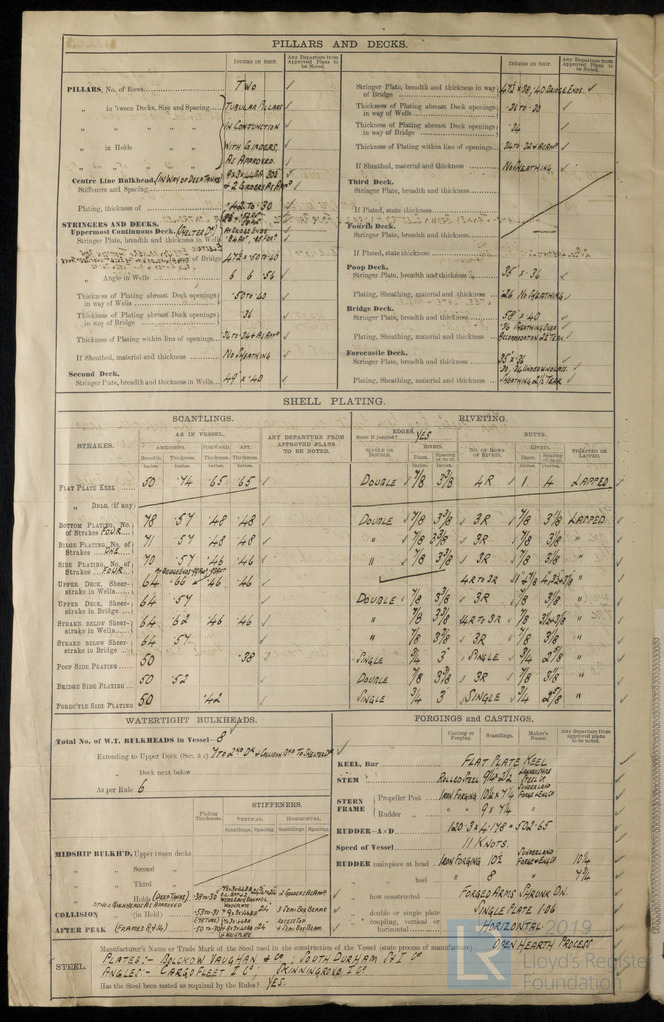 PILLARS AND DECKS.
INCHES IN SHIP.
Any Departure from Approved Plans to be Noted.
PILLARS, No. of Rows
TWO
„ in 'tween Decks, Size and Spacing
TUBULAR PILLARS
IN CONJUNCTION
„ in Holds
WITH GIRDERS,
AS APPROVED.
Centre Line Bulkhead. (IN WAY OF DEEP TANKS)
Stiffeners and Spacing
& 2 GIRDERS AS APPD
Plating, thickness of
.42 TO .30
STRINGERS AND DECKS.
Uppermost Continuous Deck. (SHELTER DK)
Stringer Plate, breadth and thickness in Wells
of Bridge
47½ × .50 TO .40
„ Angle in Wells
6 6 .56
Thickness of Plating abreast Deck openings in way of Wells
.50 TO .40
Thickness of Plating abreast Deck openings in way of Bridge
.36
Thickness of Plating within line of openings
.36 TO .34 AS APPD
If Sheathed, material and thickness
NO SHEATHING
Second Deck.
Stringer Plate, breadth and thickness in Wells
49 × .40
INCHES IN SHIP.
Any Departure from Approved Plans to be Noted.
Stringer Plate, breadth and thickness in way of Bridge
47½ × .38, .40 BRIDGE ENDS.
Thickness of Plating abreast Deck openings in way of Wells
.36 TO .30
Thickness of Plating abreast Deck openings in way of Bridge
.34
Thickness of Plating within line of openings
If Sheathed, material and thickness
NO SHEATHING
Third Deck.
Stringer Plate, breadth and thickness
If Plated, state thickness
Fourth Deck.
Stringer Plate, breadth and thickness
If Plated, state thickness
Poop Deck.
Stringer Plate, breadth and thickness
35 × .36
Plating, Sheathing, material and thickness
.26 NO SHEATHING
Bridge Deck.
Stringer Plate, breadth and thickness
58 × .40
Plating, Sheathing, material and thickness
.36 SHEATHING OVER
ACCOMMODATION 2½ TEAK
Forecastle Deck.
Stringer Plate, breadth and thickness
35 × .36
Plating, Sheathing, material and thickness
.30, .36 UNDER WINDLASS.
SHEATHING 2½ TEAK
SHELL PLATING.
SCANTLINGS.
RIVETING.
STRAKES.
AS IN VESSEL.
ANY DEPARTURE FROM APPROVED PLANS TO BE NOTED.
EDGES.
State if joggled? YES
BUTTS.
AMIDSHIPS. FORWARD. AFT.
Breadth. Thickness. Thickness. Thickness.
Inches. Inches. Inches. Inches.
SINGLE OR DOUBLE.
RIVETS.
NO. OF ROWS OF RIVETS.
RIVETS.
STRAPPED OR LAPPED.
FLAT PLATE KEEL 50 .74 .65 .65 DOUBLE 7/8 3 3/8 4R 1 4 LAPPED
„ DBLG. (if any)
BOTTOM PLATING, No. of Strakes FOUR 78 .57 .48 .48 DOUBLE 7/8 3 3/8 3R 7/8 3 1/8 LAPPED
BILGE PLATING, No. of Strakes ONE 71 .57 .48 .48 „ 7/8 3 3/8 3R 7/8 3 1/8 „
SIDE PLATING, No. of Strakes FOUR 70 .57 .46 .46 „ 7/8 3 3/8 3R 7/8 3 1/8 „
UPPER DECK, Sheerstrake in Wells 64 .66 .46 .46 4R TO 3R „
UPPER DECK, Sheerstrake in Bridge 64 .57 DOUBLE 7/8 3 3/8 3R 7/8 3 1/8 „
STRAKE BELOW Sheerstrake in Wells 64 .62 .46 .46 „ 7/8 3 3/8 4R TO 3R 7/8 „
STRAKE BELOW Sheerstrake in Bridge 64 .57 „ 7/8 3 3/8 3R 7/8 3 1/8 „
POOP SIDE PLATING 50 .38 SINGLE 3/4 3 SINGLE 3/4 2 5/8 „
BRIDGE SIDE PLATING 50 .52 DOUBLE 7/8 3 3/8 3R 7/8 3 1/8 „
FOREC'TLE SIDE PLATING 50 .42 SINGLE 3/4 3 SINGLE 3/4 2 5/8 „
WATERTIGHT BULKHEADS.
Total No. of W.T. BULKHEADS in Vessel— 8
Extending to Upper Deck (Sec. 3 c) 7 TO 2ND DK & COLLISION BHD TO SHELTER DK
„ Deck next below
As per Rule 6
Plating Thickness.
STIFFENERS.
VERTICAL. HORIZONTAL.
Scantlings. Spacing. Scantlings. Spacing.
MIDSHIP BULKH'D, Upper tween decks
„ Second „
„ Third „
„ Holds (DEEP TANKS)
2 GIRDERS AS APPD
OTHER BULKHEADS AS APPROVED
COLLISION „ (in Hold)
24 3 SEMI BOX BEAMS
AFTER PEAK (FRAMES 8 & 14)
24 4 SEMI BOX BEAMS
FORGINGS and CASTINGS.
Casting or Forging. Scantlings. Maker's Name. Any departure from approved plans to be noted.
KEEL, Bar FLAT PLATE KEEL
STEM ROLLED STEEL 9¼ × 2½ LANARKSHIRE STEEL Co
STERN FRAME
Propeller Post IRON FORGING 10½ × 7¼ SUNDERLAND FORGE & ENG Co
Rudder „ „ „ 9 × 7¼ „
RUDDER—A × D 120.3 × 4.178 = 502.65
Speed of Vessel 11 KNOTS.
RUDDER mainpiece at head IRON FORGING 10½ SUNDERLAND FORGE & ENG Co 10¼
„ „ heel „ 8 „ 7¾
„ how constructed FORGED ARMS SHRUNK ON.
„ double or single plate SINGLE PLATE 1.06
„ coupling, vertical or horizontal HORIZONTAL
STEEL.
Manufacturer's Name or Trade Mark of the Steel used in the construction of the Vessel (state process of manufacture) OPEN HEARTH PROCESS
PLATES:- BOLCKOW VAUGHAN & Co; SOUTH DURHAM S & I Co
ANGLES:- CARGO FLEET I Co; SKINNINGROVE I Co
Has the Steel been tested as required by the Rules? YES.
© 2019
LR
Lloyd's Register
Foundation